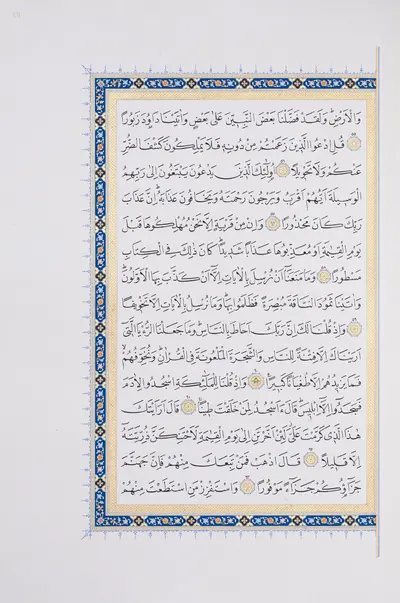 وَالْاَرْضِ وَلَقَدْ فَضَّلْنَا بَعْضَ النَّبِيّٖنَ عَلٰى بَعْضٍ وَاٰتَيْنَا دَاوُ۫دَ زَبُورًا
قُلِ ادْعُوا الَّذٖينَ زَعَمْتُمْ مِنْ دُونِهٖ فَلَا يَمْلِكُونَ كَشْفَ الضُّرِّ
عَنْكُمْ وَلَا تَحْوٖيلًا اُو۬لٰٓئِكَ الَّذٖينَ يَدْعُونَ يَبْتَغُونَ اِلٰى رَبِّهِمُ
الْوَسٖيلَةَ اَيُّهُمْ اَقْرَبُ وَيَرْجُونَ رَحْمَتَهُ وَيَخَافُونَ عَذَابَهُ اِنَّ عَذَابَ
رَبِّكَ كَانَ مَحْذُورًا وَاِنْ مِنْ قَرْيَةٍ اِلَّا نَحْنُ مُهْلِكُوهَا قَبْلَ
يَوْمِ الْقِيٰمَةِ اَوْ مُعَذِّبُوهَا عَذَابًا شَدٖيدًا كَانَ ذٰلِكَ فِى الْكِتَابِ
مَسْطُورًا وَمَا مَنَعَنَٓا اَنْ نُرْسِلَ بِالْاٰيَاتِ اِلَّٓا اَنْ كَذَّبَ بِهَا الْاَوَّلُونَ
وَاٰتَيْنَا ثَمُودَ النَّاقَةَ مُبْصِرَةً فَظَلَمُوا بِهَا وَمَا نُرْسِلُ بِالْاٰيَاتِ اِلَّا تَخْوٖيفًا
وَاِذْ قُلْنَا لَكَ اِنَّ رَبَّكَ اَحَاطَ بِالنَّاسِ وَمَا جَعَلْنَا الرُّءْيَا الَّتٖٓى
اَرَيْنَاكَ اِلَّا فِتْنَةً لِلنَّاسِ وَالشَّجَرَةَ الْمَلْعُونَةَ فِى الْقُرْاٰنِ وَنُخَوِّفُهُمْ
فَمَا يَزٖيدُهُمْ اِلَّا طُغْيَانًا كَبٖيرًا وَاِذْ قُلْنَا لِلْمَلٰٓئِكَةِ اسْجُدُوا لِاٰدَمَ
فَسَجَدُٓوا اِلَّٓا اِبْلٖيسَ قَالَ ءَاَسْجُدُ لِمَنْ خَلَقْتَ طٖينًا قَالَ اَرَاَيْتَكَ
هٰذَا الَّذٖى كَرَّمْتَ عَلَىَّ لَئِنْ اَخَّرْتَنِ اِلٰى يَوْمِ الْقِيٰمَةِ لَاَحْتَنِكَنَّ ذُرِّيَّتَهُٓ
اِلَّا قَلٖيلًا قَالَ اذْهَبْ فَمَنْ تَبِعَكَ مِنْهُمْ فَاِنَّ جَهَنَّمَ
جَزَٓاؤُ۬كُمْ جَزَٓاءً مَوْفُورًا وَاسْتَفْزِزْ مَنِ اسْتَطَعْتَ مِنْهُمْ